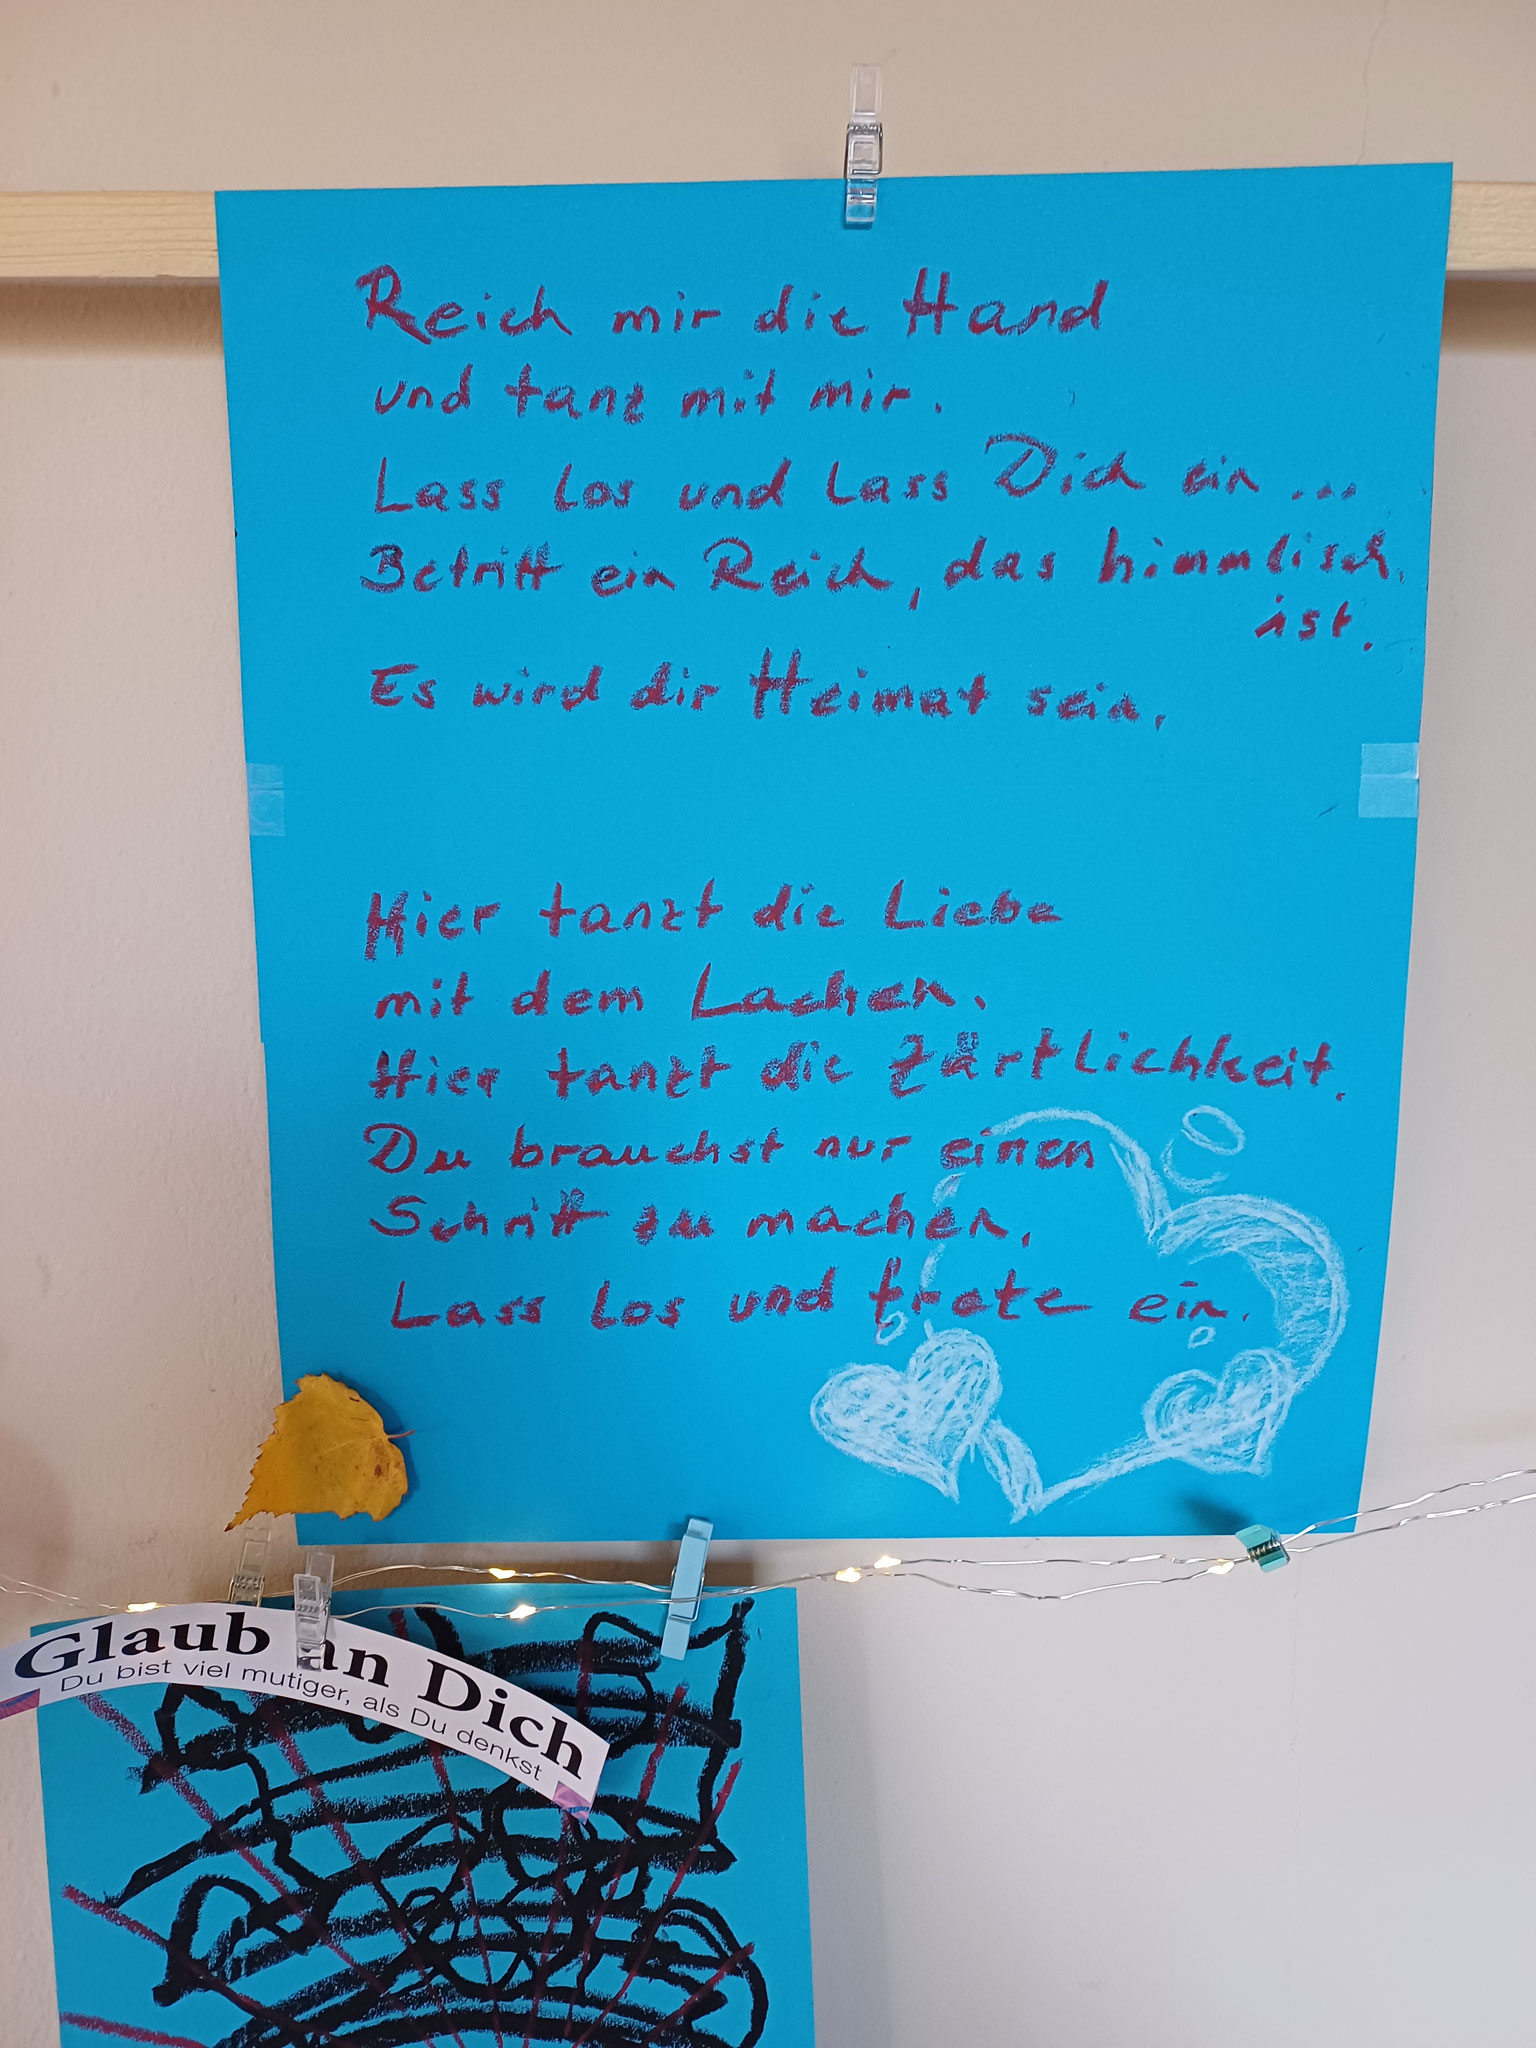 Reich mir die Hand
und tanz mit mir.
Lass los und lass Dich ein ...
Betritt ein Reich, das himmlisch
ist.
Es wird dir Heimat sein.
Hier tanzt die Liebe
mit dem Lachen.
Hier tanzt die Zärtlichkeit.
Du brauchst nur einen
Schritt zu machen.
Lass los und trete ein.
Glaub an Dich
Du bist viel mutiger, als Du denkst